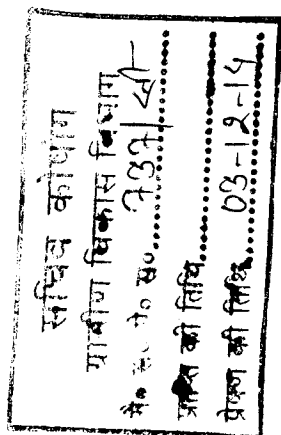 सचिव कोषांग
ग्रामीण विकास विभाग
मे० सं० सं०......737/सी
प्राप्ति की तिथि..................
प्रेषण की तिथि......03-12-14